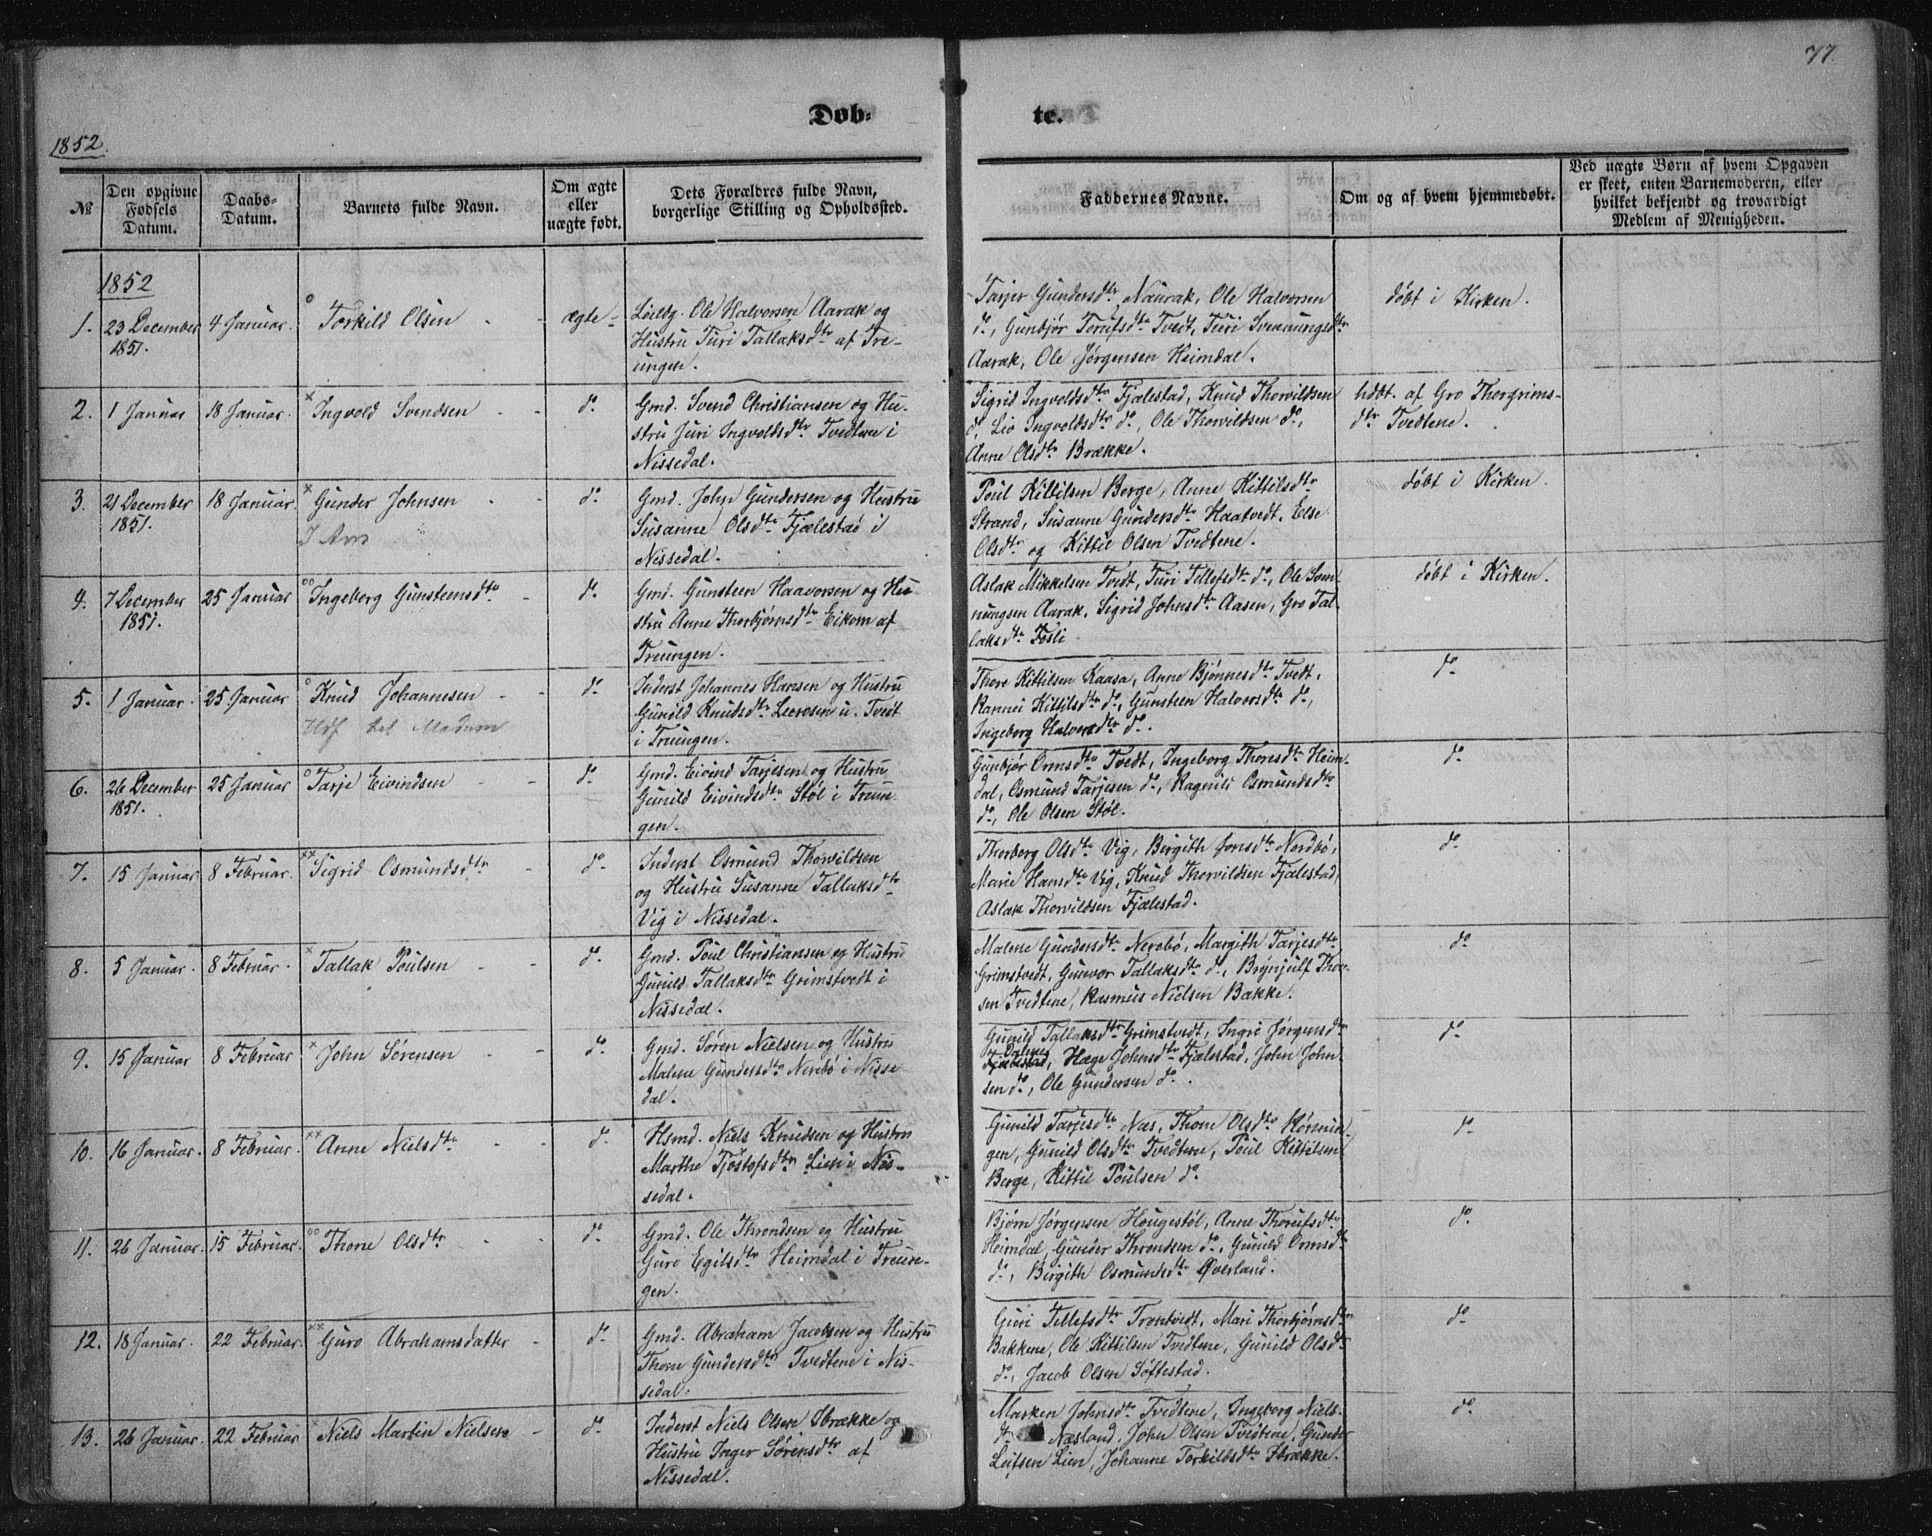 77
Døb-
te.
1852.
№
Den opgivne Fødsels Datum.
Daabs-Datum.
Barnets fulde Navn.
Om ægte eller uægte født.
Dets Forældres fulde Navn, borgerlige Stilling og Opholdssted.
Faddernes Navne.
Om og af hvem hjemmedøbt.
Ved uægte Børn af hvem Opgaven er skeet, enten Barnemoderen, eller hvilket bekjendt og troværdigt Medlem af Menigheden.
1852
1. 23 December 1851. 4 Januar. Torkild Olsen - ægte -
Ole Halvorsen Aarak og
Hustru Turi Tallaksdtr af Tre-
ungen.
Tarjer Gundersdtr Naurak, Ole Halvorsen
do, Gunbjør Torufsdtr Tvedt, Turi Svennungsdtr
Aarak, Ole Jørgensen Heimdal.
døbt i Kirken.
2. 1 Januar 18 Januar. Ingvold Svendsen - - do.
Gmd. Svend Christiansen og Hu-
stru Juri Ingvoldsdtr Tvedtene i
Nissedal.
Sigrid Ingvoldsdtr Fjælestad, Knud Thorvildsen
do, Liv Ingvoldsdtr do, Ole Thorvildsen do,
Anne Olsdtr Brække.
hdbt. af Gro Thorgrims-
dtr Tvedtene.
3. 21 December 1851. 18 Januar. Gunder Johnsen - - do.
Gmd. John Gundersen og Hustru
Susanne Olsdtr Fjælestad i
Nissedal.
Poul Kittilsen Berge, Anne Kittilsdtr
Strand, Susanne Gundersdtr Haatvedt, Else
Olsdtr og Kittil Olsen Tvedtene.
døbt i Kirken.
4. 7 December 1851. 25 Januar Ingeberg Gunsteensdtr - do.
Gmd. Gunsteen Haavorsen og Hu
stru Anne Thorbjørnsdtr Eikom af
Treungen.
Aslak Mikkelsen Tvedt, Turi Tellefsdtr do, Ole Sven
nungsen Aarak, Sigrid Johnsdtr Aasen, Gro Tal-
laksdtr Fosli
døbt i Kirken.
5. 1 Januar. 25 Januar. Knud Johannesen - - do.
Inderst Johannes Hansen og Hustru
Gunild Knudsdtr Leerosen u. Tvedt
i Treungen.
Thore Kittilsen Kaasa, Anne Bjønnesdtr Tvedt,
Rannei Kittilsdtr do, Gunsteen Halvorsdtr do,
Ingeborg Halvorsdtr do.
do
6. 26 December 1851. 25 Januar Tarje Eivindsen - - do.
Gmd. Eivind Tarjesen og Hustru
Gunild Eivindsdtr Støl i Treun-
gen.
Gunbjør Ormsdtr Tvedt, Ingeborg Thoresdtr Heim-
dal, Osmund Tarjesen do, Ragnild Osmundsdtr
do, Ole Olsen Støl.
do
7. 15 Januar 8 Februar. Sigrid Osmundsdtr - do.
Inderst Osmund Thorvildsen
og Hustru Susanne Tallaksdtr
Vig i Nissedal.
Thorberg Olsdtr Vig, Birgith Jonsdtr Nordbø,
Marie Hansdtr Vig, Knud Thorvildsen Fjælestad,
Aslak Thorvildsen Fjælestad.
do
8. 5 Januar. 8 Februar. Tallak Poulsen - - do.
Gmd. Poul Christiansen og Hustru
Gunild Tallaksdtr Grimstvedt i
Nissedal.
Malene Gundersdtr Nerebø, Margith Tarjesdtr
Grimstvedt, Gunvor Tallaksdtr do, Brynjulf Thor-
sen Tvedtene, Rasmus Nielsen Bakke.
do
9. 15 Januar 8 Februar John Sørensen - - do.
Gmd. Søren Nielsen og Hustru
Malene Gundersdtr Nerebø i Nisse
dal.
Gunild Tallaksdtr Grimstvedt, Ingri Jørgensdtr
Fjælestad, Hæge Johnsdtr Fjælestad, John John
sen do, Ole Gundersen do.
do
10. 16 Januar. 8 Februar. Anne Nielsdtr - do.
Hsmd. Niels Knudsen og Hustru
Marthe Tjostofsdtr Lien i Nis-
sedal.
Gunild Tarjesdtr Næs, Thone Olsdtr Rønnin-
gen, Gunild Olsdtr Tvedtene, Poul Kittilsen
Berge, Kittil Poulsen do
do
11. 26 Januar. 15 Februar. Thone Olsdtr - do.
Gmd. Ole Throndsen og Hustru
Guro Egilsdtr Heimdal i Treun-
gen.
Bjørn Jørgensen Hougestøl, Anne Thorufsdtr
Heimdal, Gunder Throndsen do, Gunild Ormsdtr
do, Birgith Osmundsdtr Øverland.
do.
12. 18 Januar. 22 Februar. Guro Abrahamsdatter - do.
Gmd. Abraham Jacobsen og Hustru
Thone Gundersdtr Tvedtene i Nis-
sedal.
Guri Tellefsdtr Trontvedt, Mari Thorbjørnsdtr
Bakkene, Ole Kittilsen Tvedtene, Gunild Olsdtr
do, Jacob Olsen Søftestad.
do
13. 26 Januar. 22 Februar Niels Martin Nielsen - do.
Inderst Niels Olsen Brække og
Hustru Inger Sørensdtr af
Nissedal.
Marken Johnsdtr Tvedtene, Ingeborg Niels-
dtr Næsland, John Olsen Tvedtene, Gunder
Leifsen Lien, Johanne Torkildsdtr Brække.
do